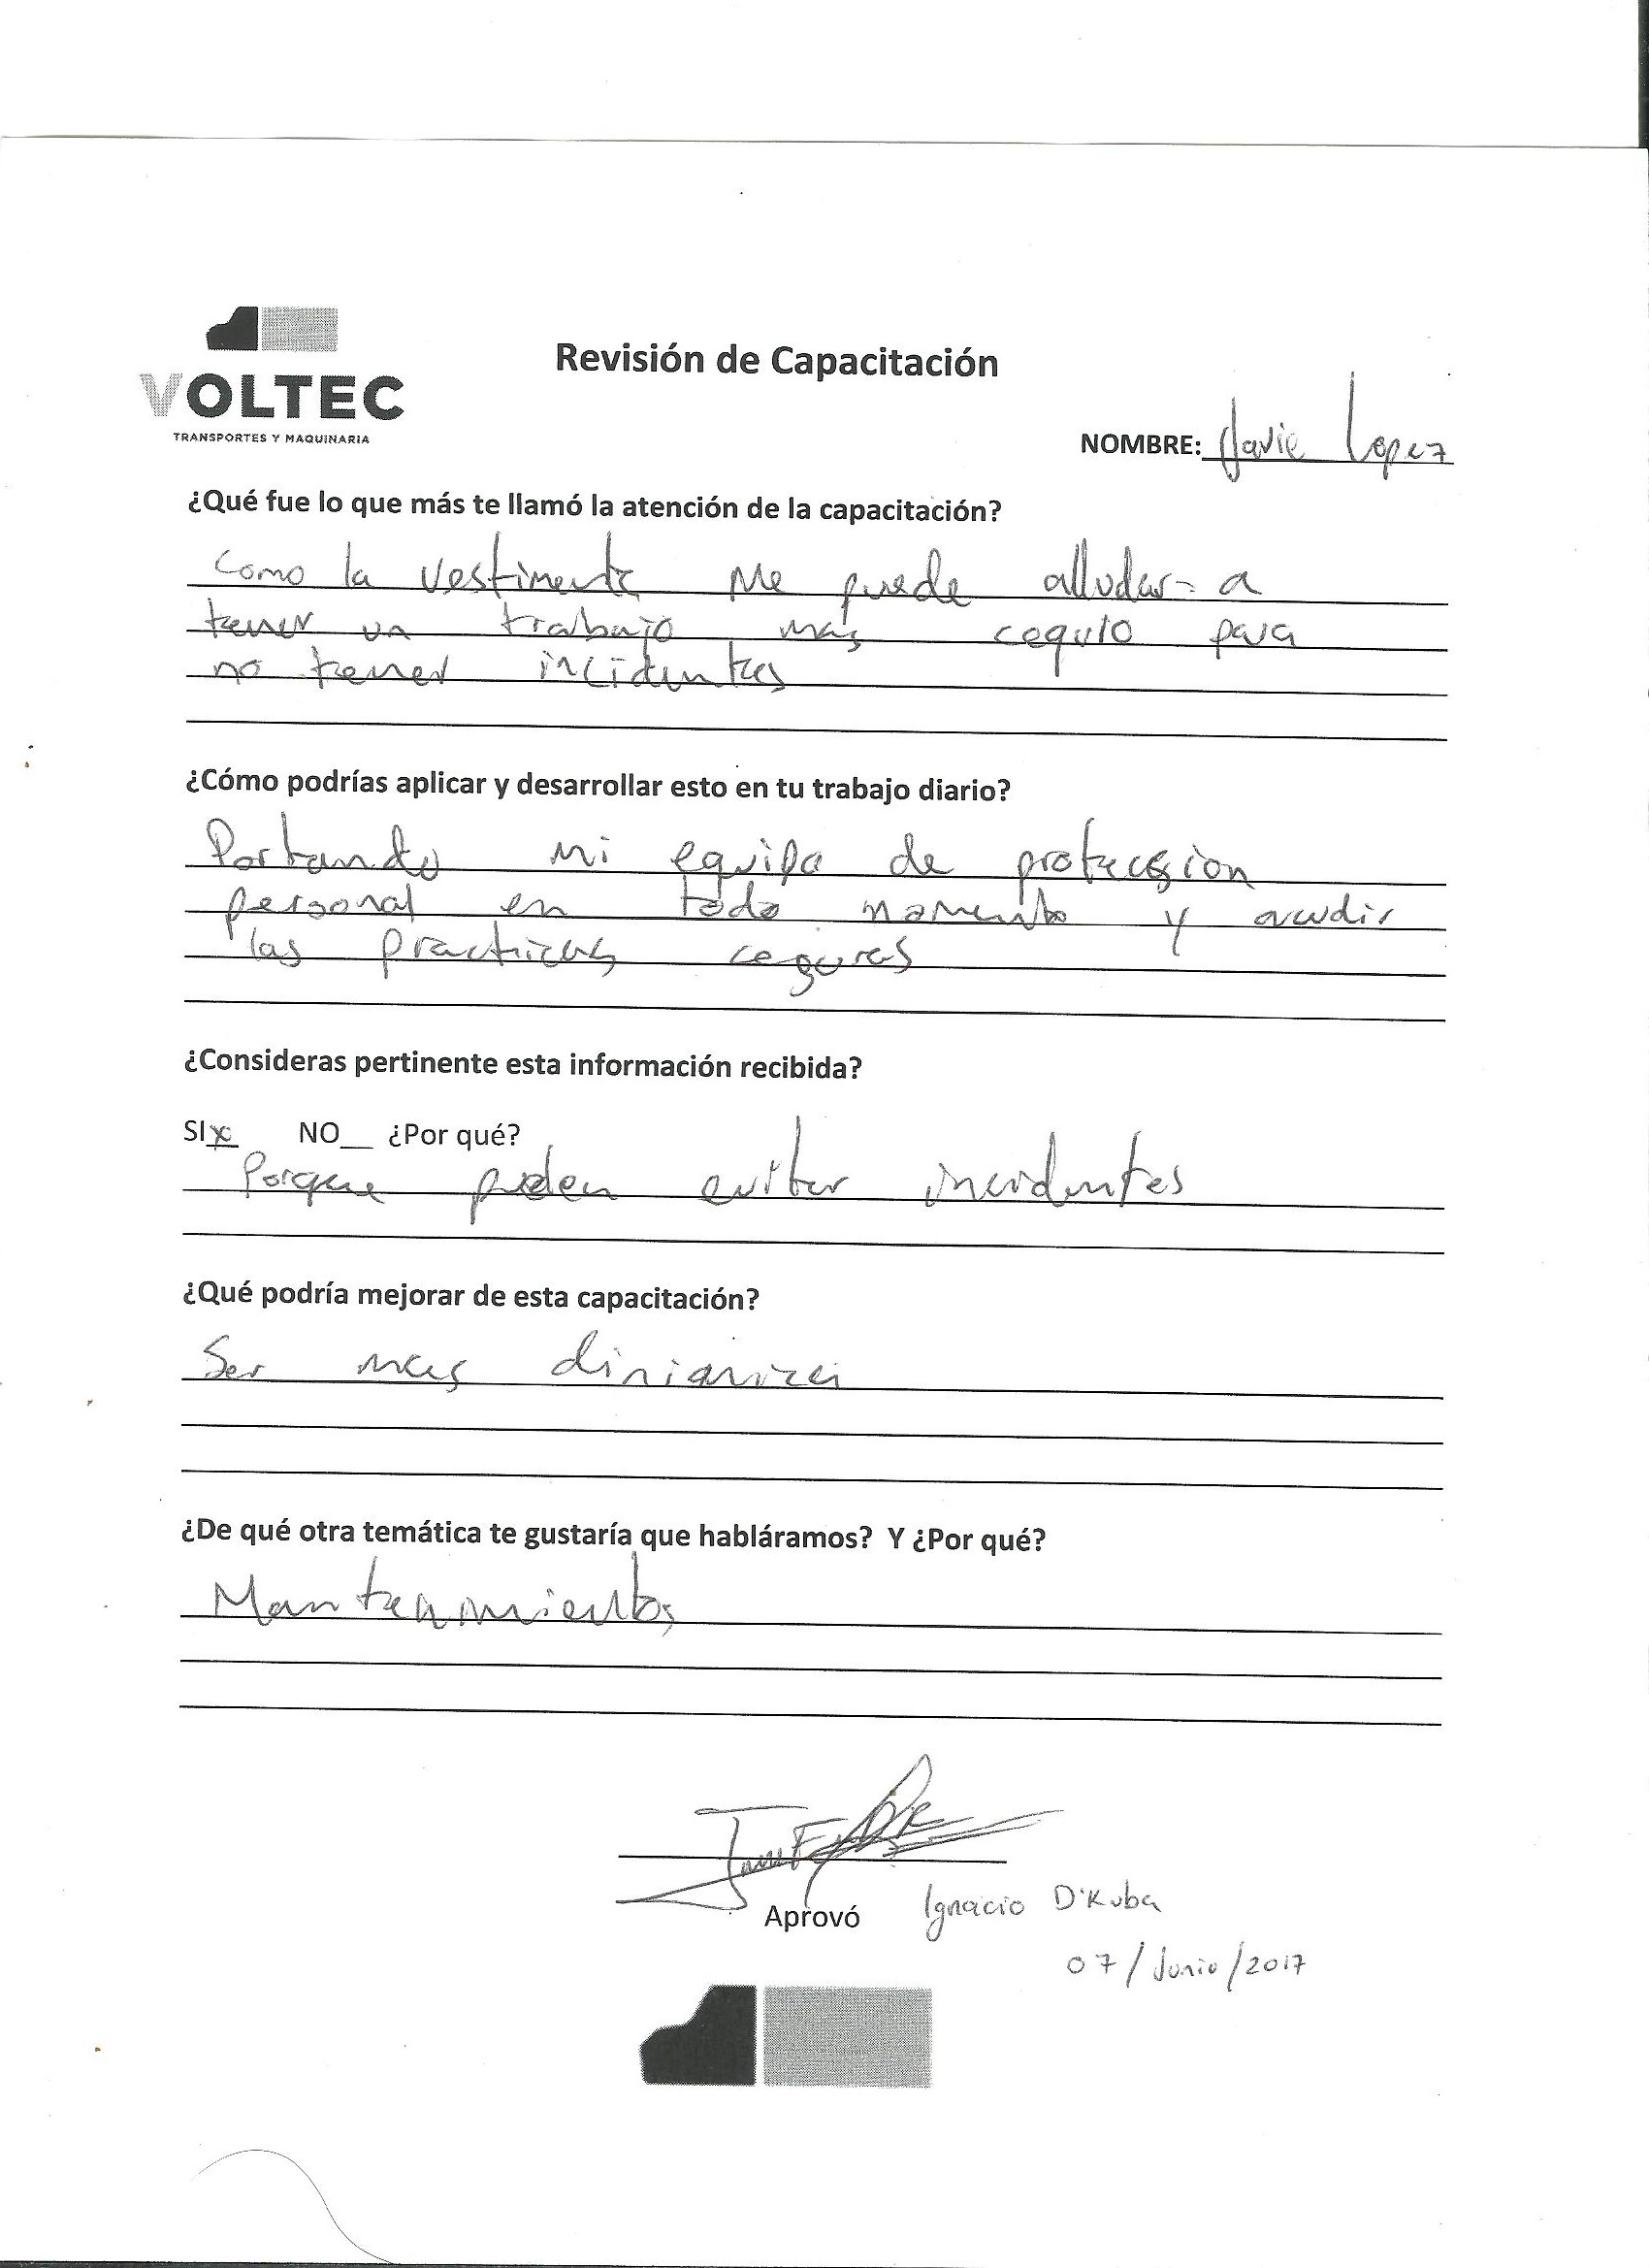 VOLTEC
TRANSPORTES Y MAQUINARIA
Revisión de Capacitación
NOMBRE: Javie Lopez
¿Qué fue lo que más te llamó la atención de la capacitación?
Como la vestimenta Me puede alludar a
tener un trabajo más ceguro para
no tener incidentes
¿Cómo podrías aplicar y desarrollar esto en tu trabajo diario?
Portando mi equipo de proteccion
personal en todo momento y acudir
las practicas ceguras
¿Consideras pertinente esta información recibida?
SI x NO__ ¿Por qué?
Porque pueden evitar incidentes
¿Qué podría mejorar de esta capacitación?
Ser mas
¿De qué otra temática te gustaría que habláramos? Y ¿Por qué?
Mantenmiento
Aprovó Ignacio D'Kuba
07/Junio/2017